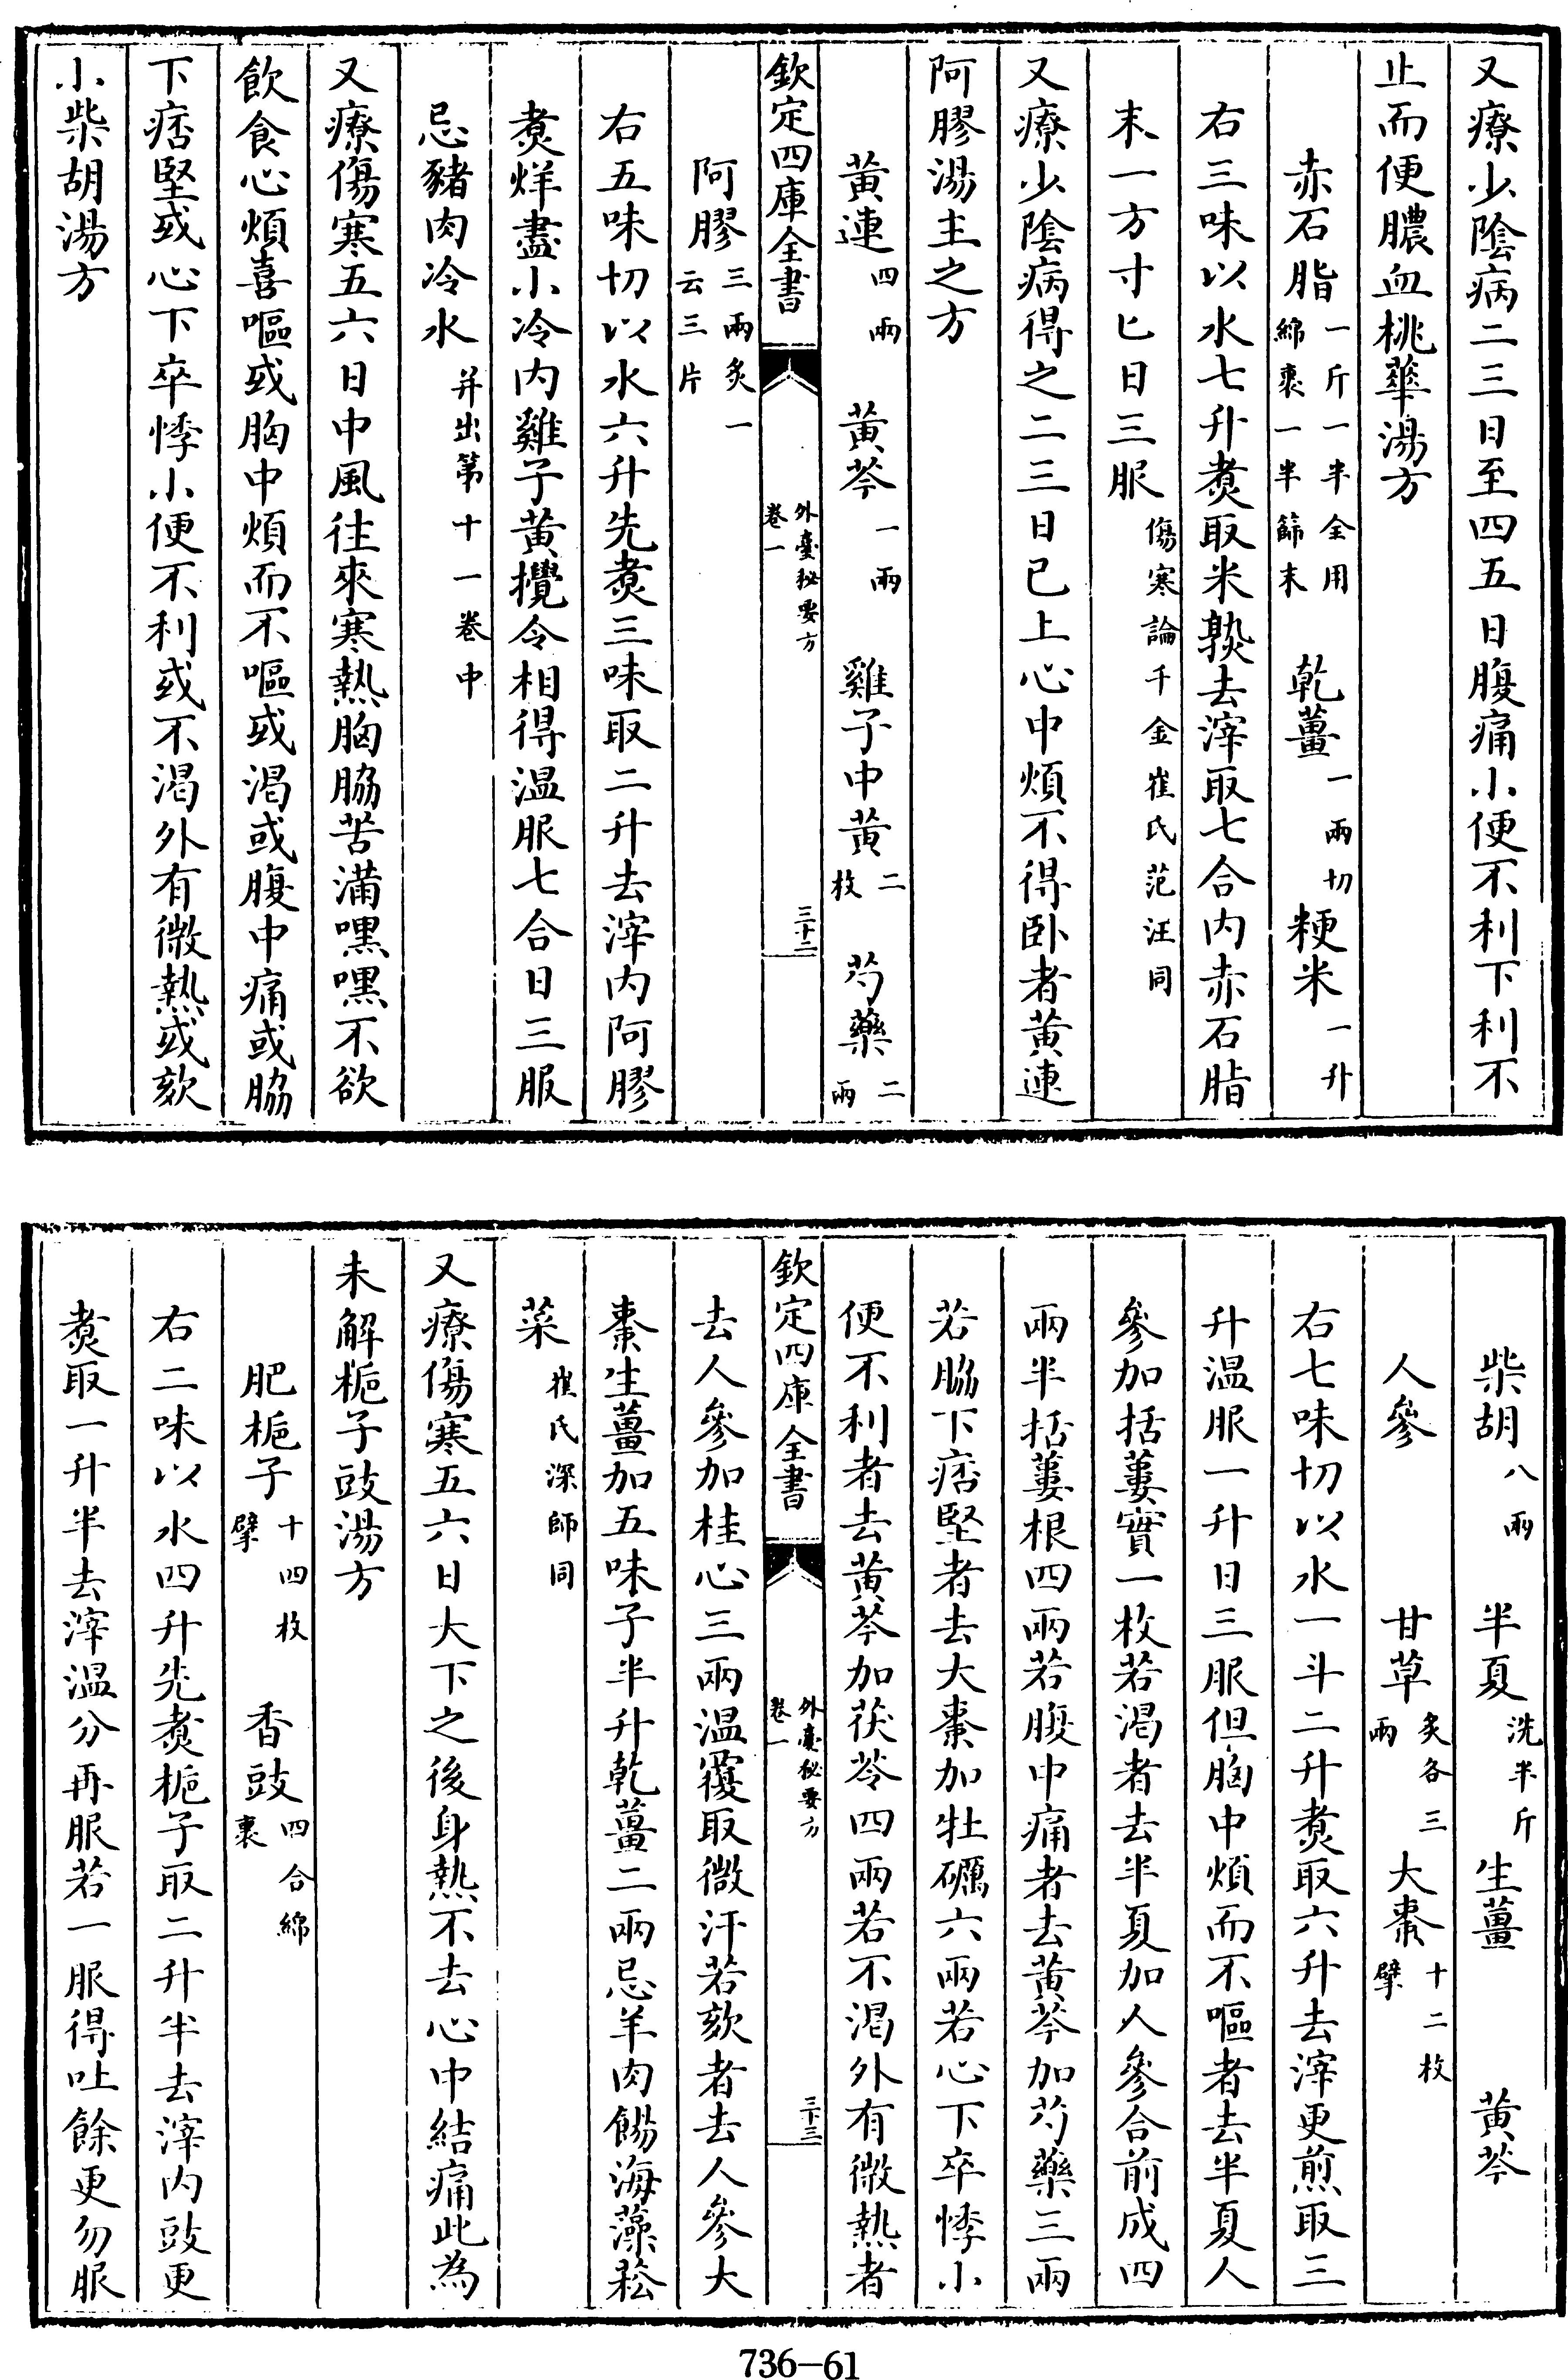 又療少隂病二三日至四五日腹痛小便不利下利不
止而便膿血桃華湯方
赤石脂一斤一半全用綿裹一半篩末 乾薑一兩切 粳米一升
右三味以水七升煑取米熟去滓取七合内赤石脂
末一方寸匕日三服傷寒論千金崔氏范汪同
又療少隂病得之二三日已上心中煩不得卧者黄連
阿膠湯主之方
黄連四兩 黄芩一兩 雞子中黄二枚 芍藥二兩
欽定四庫全書 外臺秘要方卷一 三十二
阿膠三兩炙一云三片
右五味切以水六升先煑三味取二升去滓内阿膠
煑烊盡小冷内雞子黄攪令相得温服七合日三服
忌豬肉冷水并出第十一卷中
又療傷寒五六日中風往來寒熱胸脇苦滿嘿嘿不欲
飲食心煩喜嘔或胸中煩而不嘔或渴或腹中痛或脇
下痞堅或心下卒悸小便不利或不渴外有微熱或欬
小柴胡湯方
柴胡八兩 半夏洗半斤 生薑 黄芩
人參 甘草炙各三兩 大棗十二枚擘
右七味切以水一斗二升煑取六升去滓更煎取三
升温服一升日三服但胸中煩而不嘔者去半夏人
參加括蔞實一枚若渴者去半夏加人參合前成四
兩半括蔞根四兩若腹中痛者去黄芩加芍藥三兩
若脇下痞堅者去大棗加牡礪六兩若心下卒悸小
便不利者去黄芩加茯苓四兩若不渴外有微熱者
欽定四庫全書 外臺秘要方卷一 三十三
去人參加桂心三兩温覆取微汗若欬者去人參大
棗生薑加五味子半升乾薑二兩忌羊肉餳海藻菘
菜崔氏深師同
又療傷寒五六日大下之後身熱不去心中結痛此為
未解梔子豉湯方
肥梔子十四枚擘 香豉四合綿裹
右二味以水四升先煑梔子取二升半去滓内豉更
煑取一升半去滓温分再服若一服得吐餘更勿服
736—61